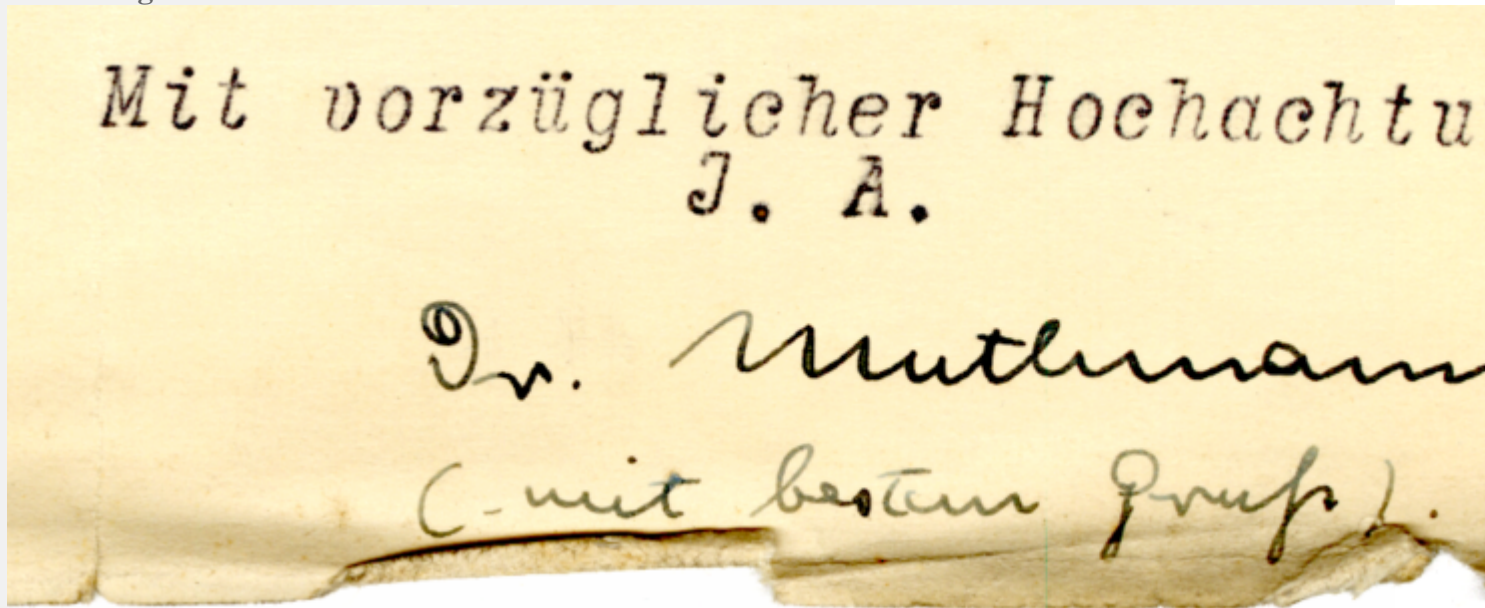 Mit vorzüglicher Hochachtu
J. A.
Dr. Muthmann
(mit bestem Gruß).